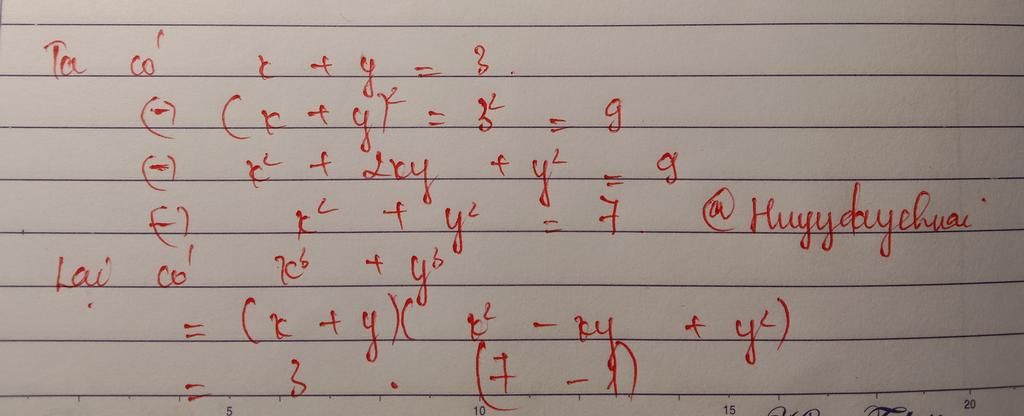 Ta có x + y = 3.
(=) (x + y)² = 3² = 9
(=) x² + 2xy + y² = 9
(=) x² + y² = 7 @Huyydaychuai
Lại có x³ + y³
= (x + y)(x² - xy + y²)
= 3 . (7 - 1)
5 10 15 20